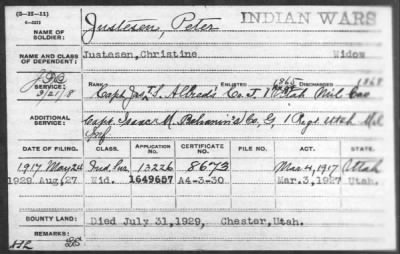 (3-II-11)
INDIAN WARS
NAME OF SOLDIER: Justesen, Peter
NAME AND CLASS OF DEPENDENT: Justesen, Christine Widow
SERVICE: RANK ENLISTED 1865 DISCHARGED 1868
3/21/8 Capt. Jos. S. Allred's Co. I, Utah Mil Cav
ADDITIONAL SERVICE: Capt. Isaac M. Behunin's Co, G, 1 Regt. Utah Mil
Inf
DATE OF FILING. CLASS. APPLICATION NO. CERTIFICATE NO. FILE NO. ACT. STATE.
1917 May 24 Ind. Sur. 13226 8673 Mar. 4, 1917 Utah
1929 Aug, 27 Wid. 1649657 A4-3-30 Mar. 3, 1927 Utah.
BOUNTY LAND: Died July 31, 1929, Chester, Utah.
REMARKS: